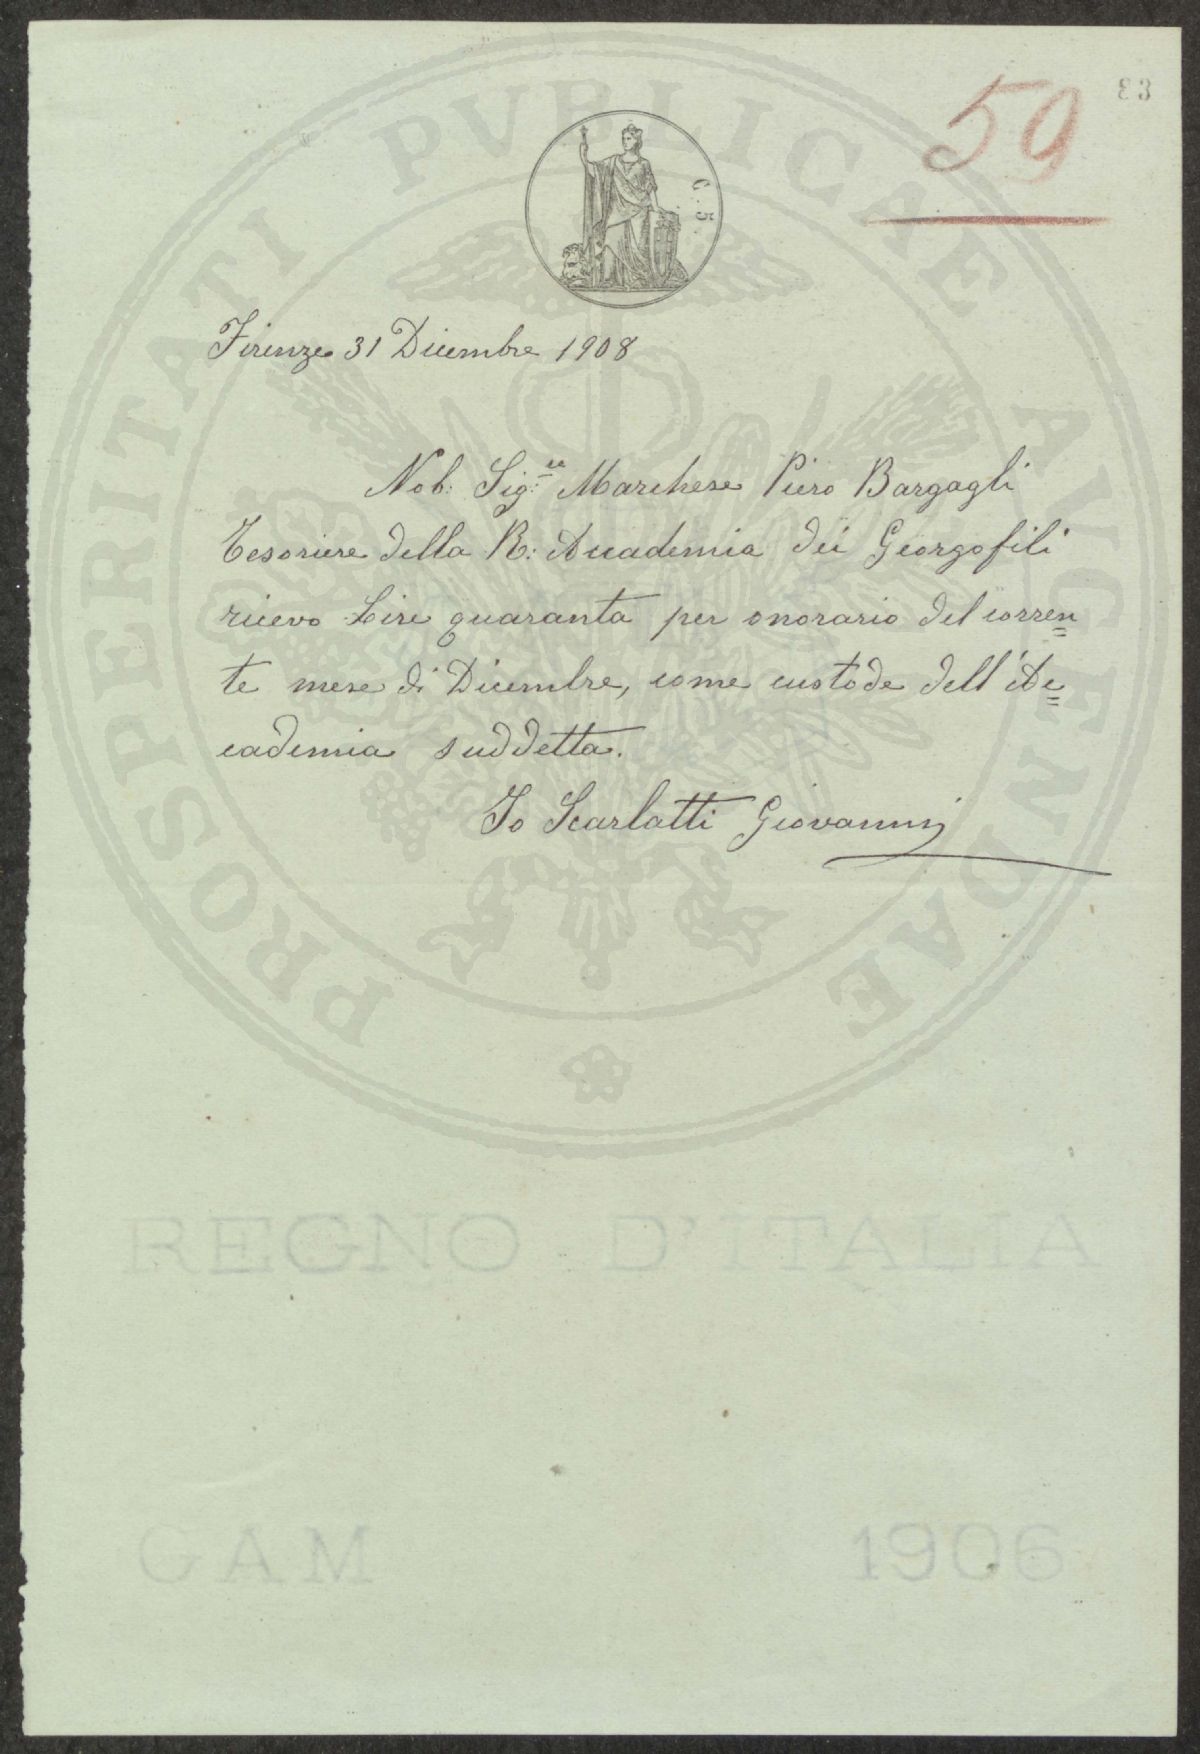 83
59
C. 5.
PROSPERITATI PVBLICAE AVGENDAE
Firenze 31 Dicembre 1908
Nob: Sig:re Marchese Piero Bargagli
Tesoriere della R: Accademia dei Georgofili
ricevo Lire quaranta per onorario del corren=
te mese di Dicembre, come custode dell'Ac=
cademia suddetta.
Io Scarlatti Giovanni
REGNO D'ITALIA
GAM 1906